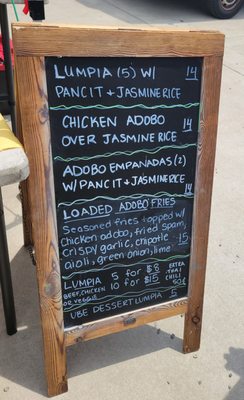 LUMPIA (5) W/ 14
PANCIT + JASMINE RICE
CHICKEN ADOBO 14
OVER JASMINE RICE
ADOBO EMPANADAS (2)
W/ PANCIT + JASMINE RICE 14
LOADED ADOBO FRIES
Seasoned fries topped w/
Chicken adobo, fried spam,
crispy garlic, chipotle 15
aioli, green onion, lime
LUMPIA 5 for $8 EXTRA
BEEF, CHICKEN 10 for $15 THAI
OR VEGGIE CHILI
50¢
UBE DESSERT LUMPIA 5